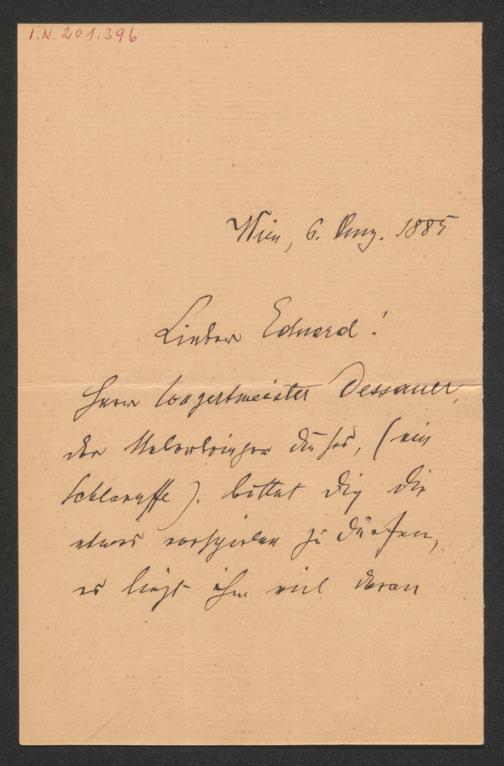 I.N. 201.396
Wien, 6. Aug. 1885
Lieber Eduard!
Herr Conzertmeister Dessauer,
der Ueberbringer dieses, (ein
Schlaraffe). bittet Dich Dir
etwas vorspielen zu dürfen,
es liegt ihm viel daran